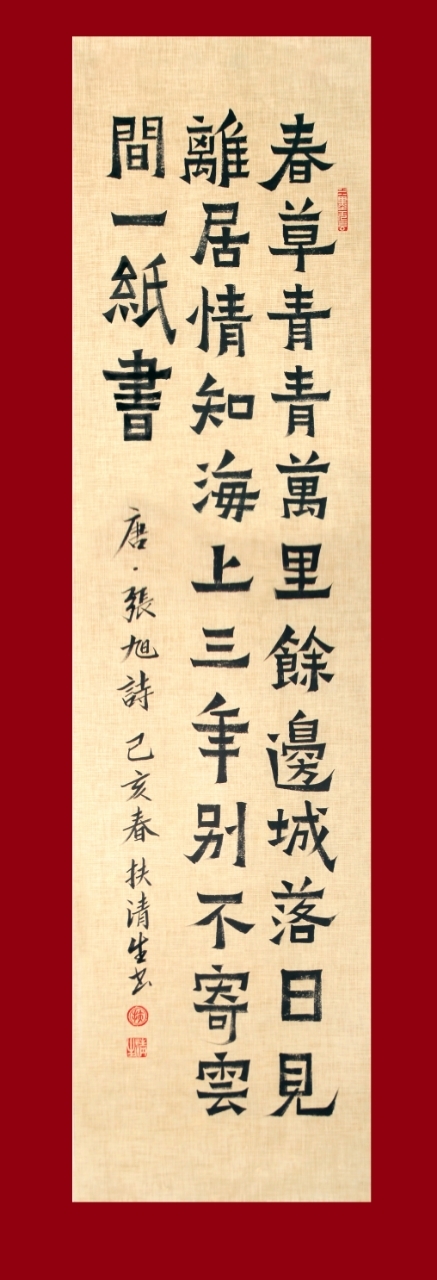 春草青青萬里餘邊城落日見
離居情知海上三年别不寄雲
間一紙書
唐·張旭詩 己亥春 扶清生书